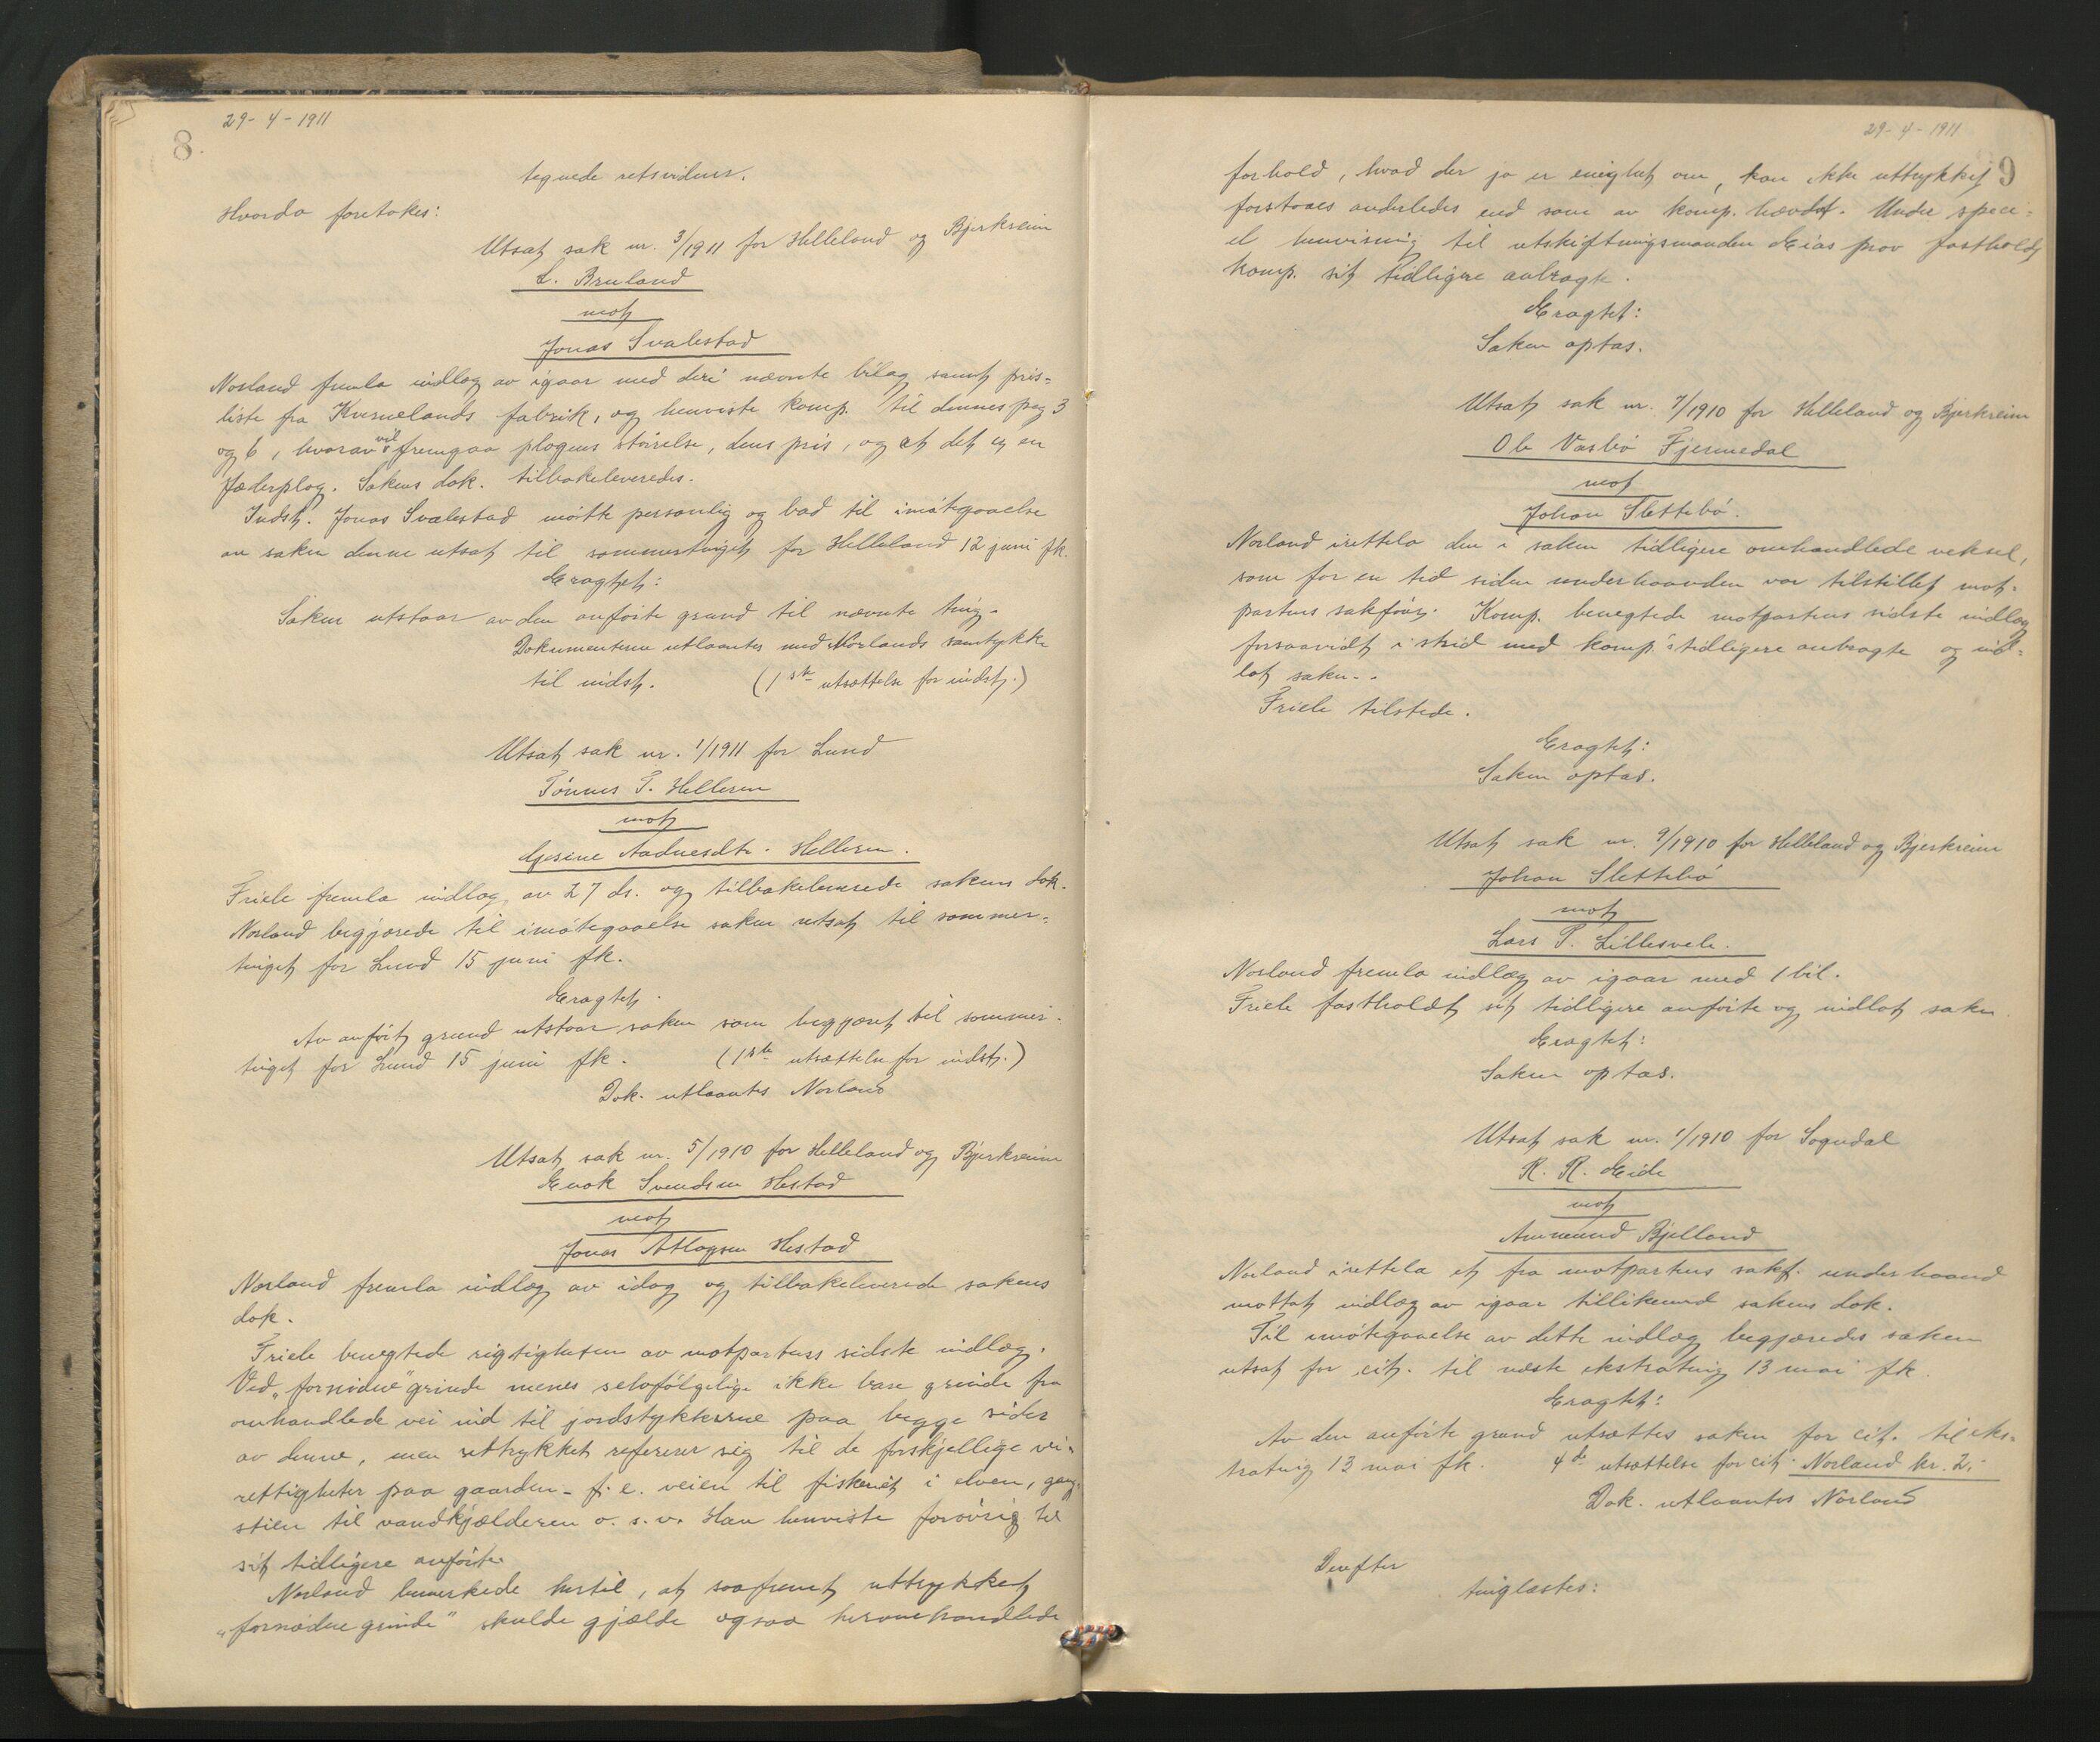 8.
29-4-1911
tegnede retsvidner.
Hvorda foretokes:
Utsat sak nr. 3/1911 for Helleland og Bjerkreim
L. Bruland
mot
Jonas Svalestad
Norland fremla indlæg av igaar med deri nævnte bilag samt pris-
liste fra Kvernelands fabrik, og henviste komp. til dennes pag 3
og 6, hvorav vil fremgaa plogens störelse, dens pris, og at det er en
Jæderplog. Sakens dok. tilbakeleveredes.
Indst. Jonas Svalestad mötte personlig og bad til imötegaaelse
av saken denne utsat til sommertinget for Helleland 12 juni fk.
Eragtet:
Saken utstaar av den anförte grund til nævnte ting.
Dokumenterne utlaantes med Norlands samtykke
til indst. (1ste utsættelse for indst.)
Utsat sak nr. 1/1911 for Lund
Tönnes T. Helleren
mot
Gesine Aadnesdtr. Helleren.
Friele fremla indlæg av 27 ds. og tilbakeleverede sakens dok.
Norland begjærede til imötegaaelse saken utsat til sommer-
tinget for Lund 15 juni fk.
Eragtet.
Av anfört grund utstaar saken som begjæret til sommer-
tinget for Lund 15 juni fk. (1ste utsættelse for indst.)
Dok. utlaantes Norland
Utsat sak nr. 5/1910 for Helleland og Bjerkreim
Enok Svendsen Hestad
mot
Jonas Atlagsen Hestad
Norland fremla indlæg av idag og tilbakeleverede sakens
dok.
Friele benegtede rigtigheten av motpartens sidste indlæg.
Ved "fornödne" grinde menes selvfölgelige ikke bare grinde fra
omhandlede vei ind til jordstykkerne paa begge sider
av denne, men uttrykket refererer sig til de forskjellige vei-
rettigheter paa gaarden - f. e. veien til fiskeriet i elven, gang-
stien til vandkjælderen o. s. v. Han henviste forövrig til
sit tidligere anförte.
Norland bemerkede hertil, at saafremt uttrykket
"fornödne grinde" skulde gjælde ogsaa heromhandlede
29-4-1911
9
forhold, hvad der jo er enighet om, kan ikke uttrykket
forstaaes anderledes end som av komp. hævdet. Under speci-
el henvisning til utskiftningsmanden Eias prov fastholdt
komp. sit tidligere anbragte.
Eragtet:
Saken optas.
Utsat sak nr. 7/1910 for Helleland og Bjerkreim
Ole Vasbö Fjermedal
mot
Johan Slettebö.
Norland irettela den i saken tidligere omhandlede veksel,
som for en tid siden underhaanden var tilstillet mot-
partens sakförer. Komp. benegtede motpartens sidste indlæg
forsaavidt i strid med komp.s tidligere anbragte og ind-
lot saken..
Friele tilstede.
Eragtet:
Saken optas.
Utsat sak nr. 9/1910 for Helleland og Bjerkreim
Johan Slettebö
mot
Lars T. Lillesvele.
Norland fremla indlæg av igaar med 1 bil.
Friele fastholdt sit tidligere anförte og indlot saken.
Eragtet:
Saken optas.
Utsat sak nr. 1/1910 for Sogndal
R. R. Eide
mot
Ammund Bjelland
Norland irettela et fra motpartens sakf. underhaand
mottat indlæg av igaar tillikemed sakens dok.
Til imötegaaelse av dette indlæg begjæredes saken
utsat for cit. til næste ekstrating 13 mai fk.
Eragtet:
Av den anförte grund utsættes saken for cit. til eks-
trating 13 mai fk. 4de utsættelse for cit. Norland kr. 2,-
Dok. utlaantes Norland
Derefter
tinglæstes: